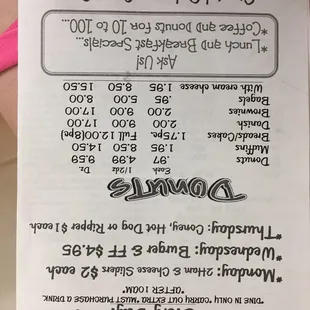 *DINE IN ONLY "CARRY OUT EXTRA" MUST PURCHASE A DRINK
*AFTER 10AM*
*Monday: 2Ham & Cheese Sliders $2 each
*Wednesday: Burger & FF $4.95
*Thursday: Coney, Hot Dog or Ripper $1 each
DONUTS
Each 1/2dz Dz
Donuts .97 4.99 9.59
Muffins 1.95 8.50 14.50
Breads/Cakes 1.75pc. Full 12.00(8pc)
Danish 2.00 9.00 17.00
Brownies 2.00 9.00 17.00
Bagels .95 5.00 8.00
With cream cheese 1.95 8.50 15.50
Ask Us!
*Lunch and Breakfast Specials...
*Coffee and Donuts for 10 to 100...